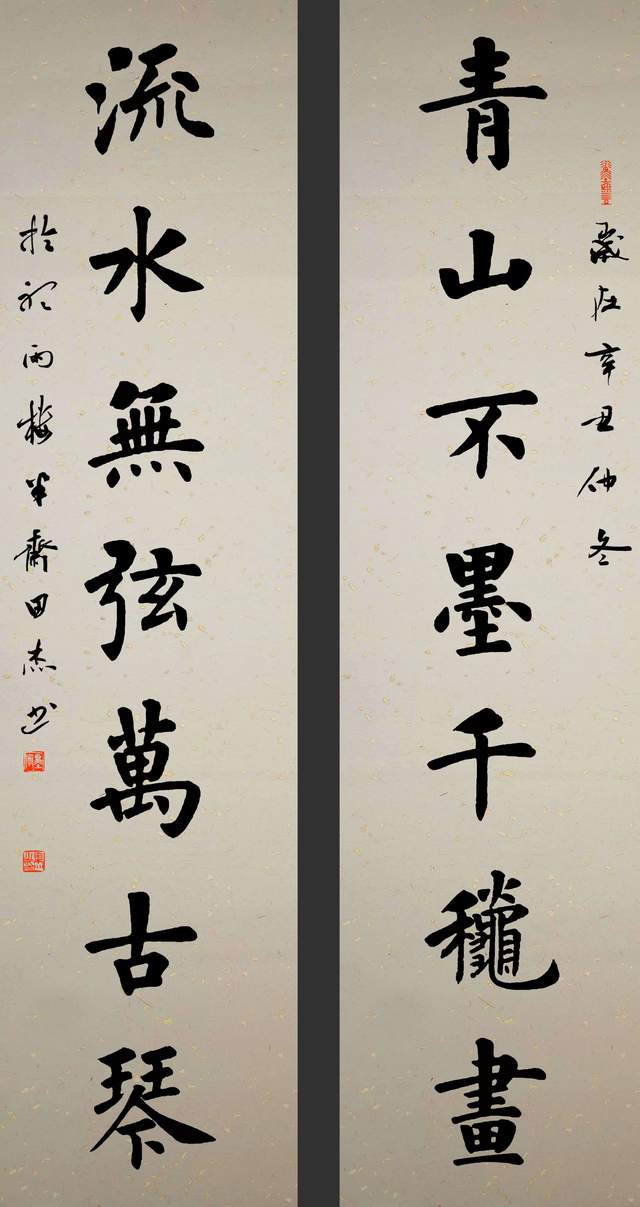 青山不墨千龝畫
歲在辛丑仲冬
流水無弦萬古琴
於雨半齋田杰书